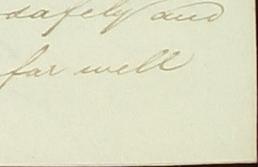 safely and
far well